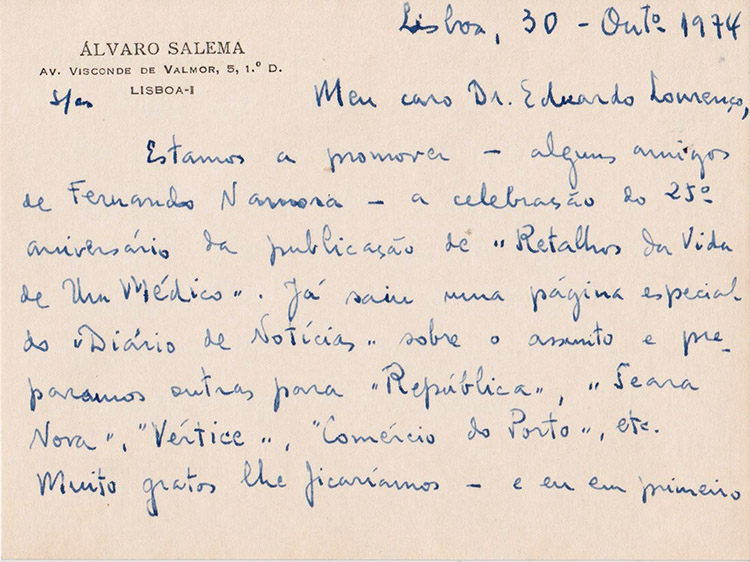 Lisboa, 30 - Outº 1974
ÁLVARO SALEMA
AV. VISCONDE DE VALMOR, 5, 1.º D.
LISBOA-1
S/cs
Meu caro Dr. Eduardo Lourenço,
Estamos a promover — alguns amigos
de Fernando Namora — a celebração do 25º
aniversário da publicação de "Retalhos da Vida
de Um Médico". Já saiu uma página especial
do "Diário de Notícias" sobre o assunto e pre-
paramos outras para "República", "Seara
Nova", "Vértice", "Comércio do Porto", etc.
Muito gratos lhe ficaríamos — e eu em primeiro